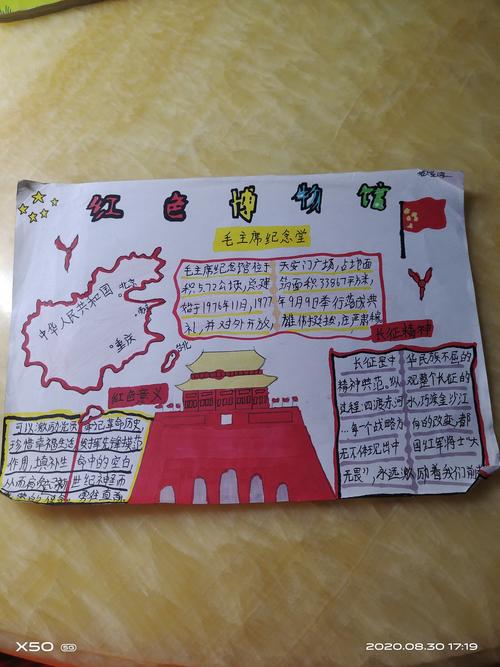 红色博物馆
毛主席纪念堂
毛主席纪念馆位于天安门广场,占地面
积5.72公顷,总建筑面积33867平方米,
始于1976年11月,1977年9月9日举行落成典
礼,并对外开放,雄伟挺拔,庄严肃穆
中华人民共和国
北京
重庆
台北
红色意义
长征精神
可以激励后代牢记革命历史
珍惜幸福生活发挥先锋模范
作用,填补生命中的空白,
长征是中华民族不屈的
精神典范。纵观整个长征的
过程:四渡赤河水,巧渡金沙江
…每个战略方向的改变,都
无不体现出中国红军将士"大
无畏",永远激励着我们前
X50 5G
2020.08.30 17:19